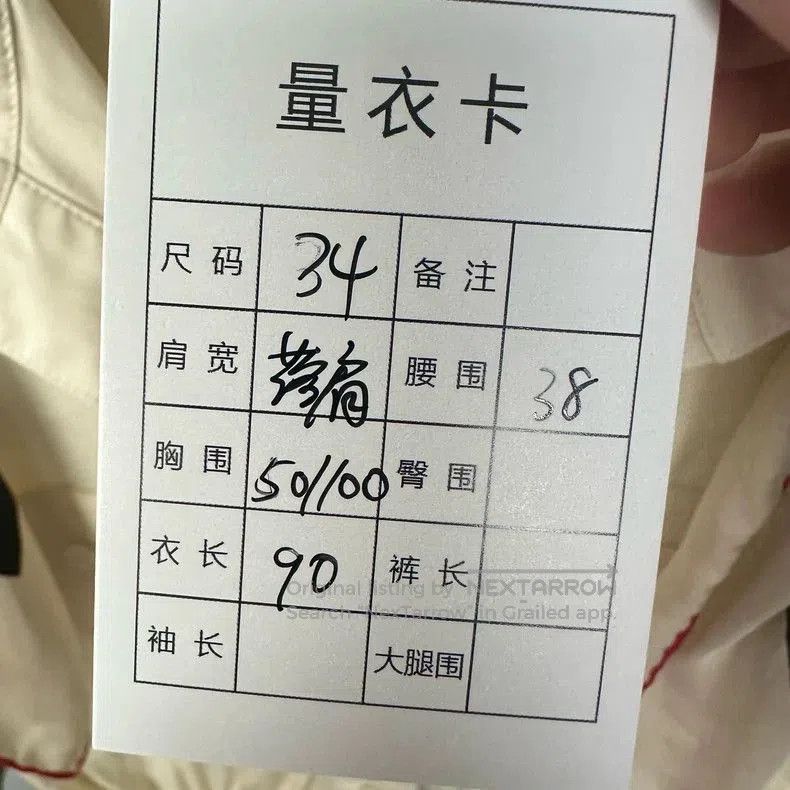 量衣卡
尺码 34 备注
肩宽 落肩 腰围 38
胸围 50/100 臀围
衣长 90 裤长
Original listing by NEXTARROW
Search "NexTarrow" in Grailed app.
袖长 大腿围